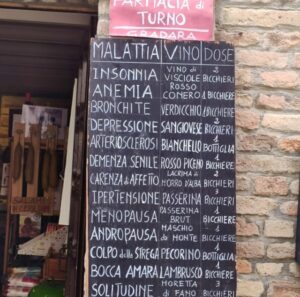 FARMACIA di
TURNO
GRADARA
MALATTIA VINO DOSE
INSONNIA VINO di VISCIOLE 2 BICCHIERI
ANEMIA ROSSO CONERO 1 BICCHIERE
BRONCHITE VERDICCHIO 2 BICCHIERI
DEPRESSIONE SANGIOVESE BICCHIERI
ARTERIOSCLEROSI BIANCHELLO 1 BOTTIGLIA
DEMENZA SENILE ROSSO PICENO 1 BICCHIERE
CARENZA di AFFETTO LACRIMA di MORRO D'ALBA BICCHIERI
IPERTENSIONE PASSERINA BICCHIERI
MENOPAUSA PASSERINA BRUT BICCHIERE
ANDROPAUSA MASCHIO da MONTE BICCHIERI
COLPO della STREGA PECORINO BOTTIGLIA
BOCCA AMARA LAMBRUSCO BICCHIERE
SOLITUDINE MORETTA di FANO 3 BICCHIERI